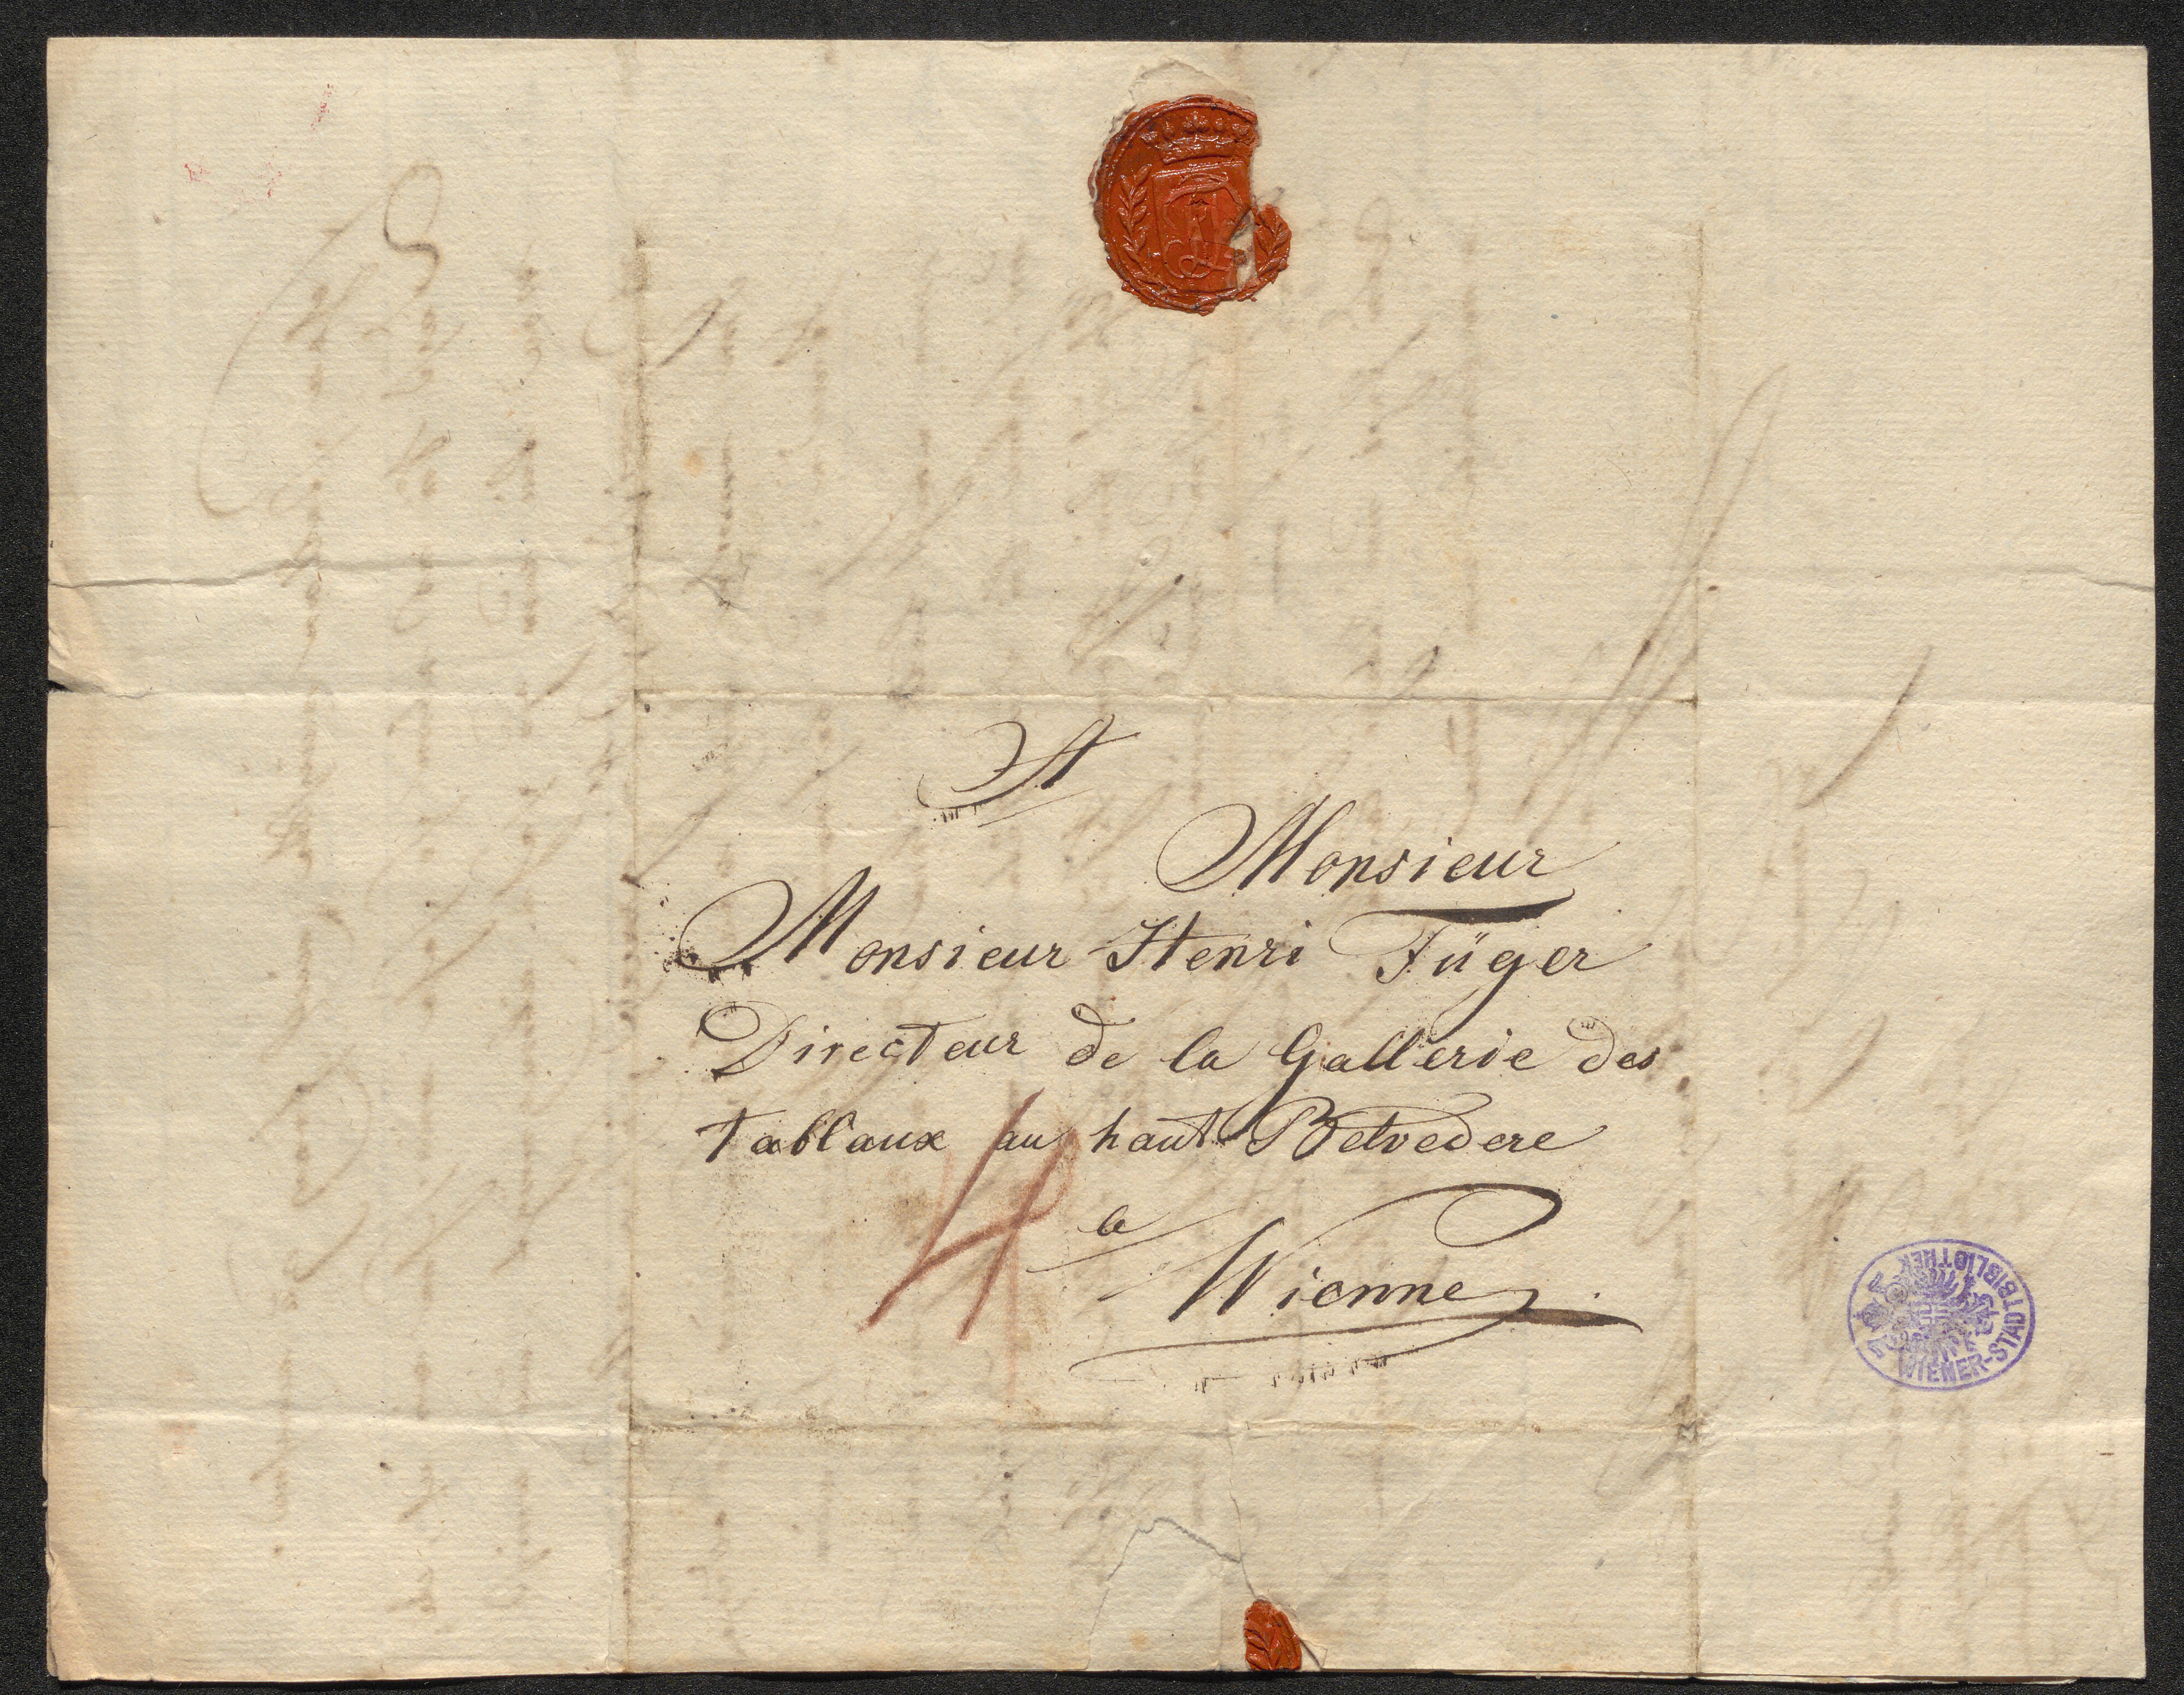 A
Monsieur
Monsieur Henri Füger
Directeur de la Gallerie des
Tablaux au haut Belvedere
a
Wienne
4
WIENER-STADTBIBLIOTHEK